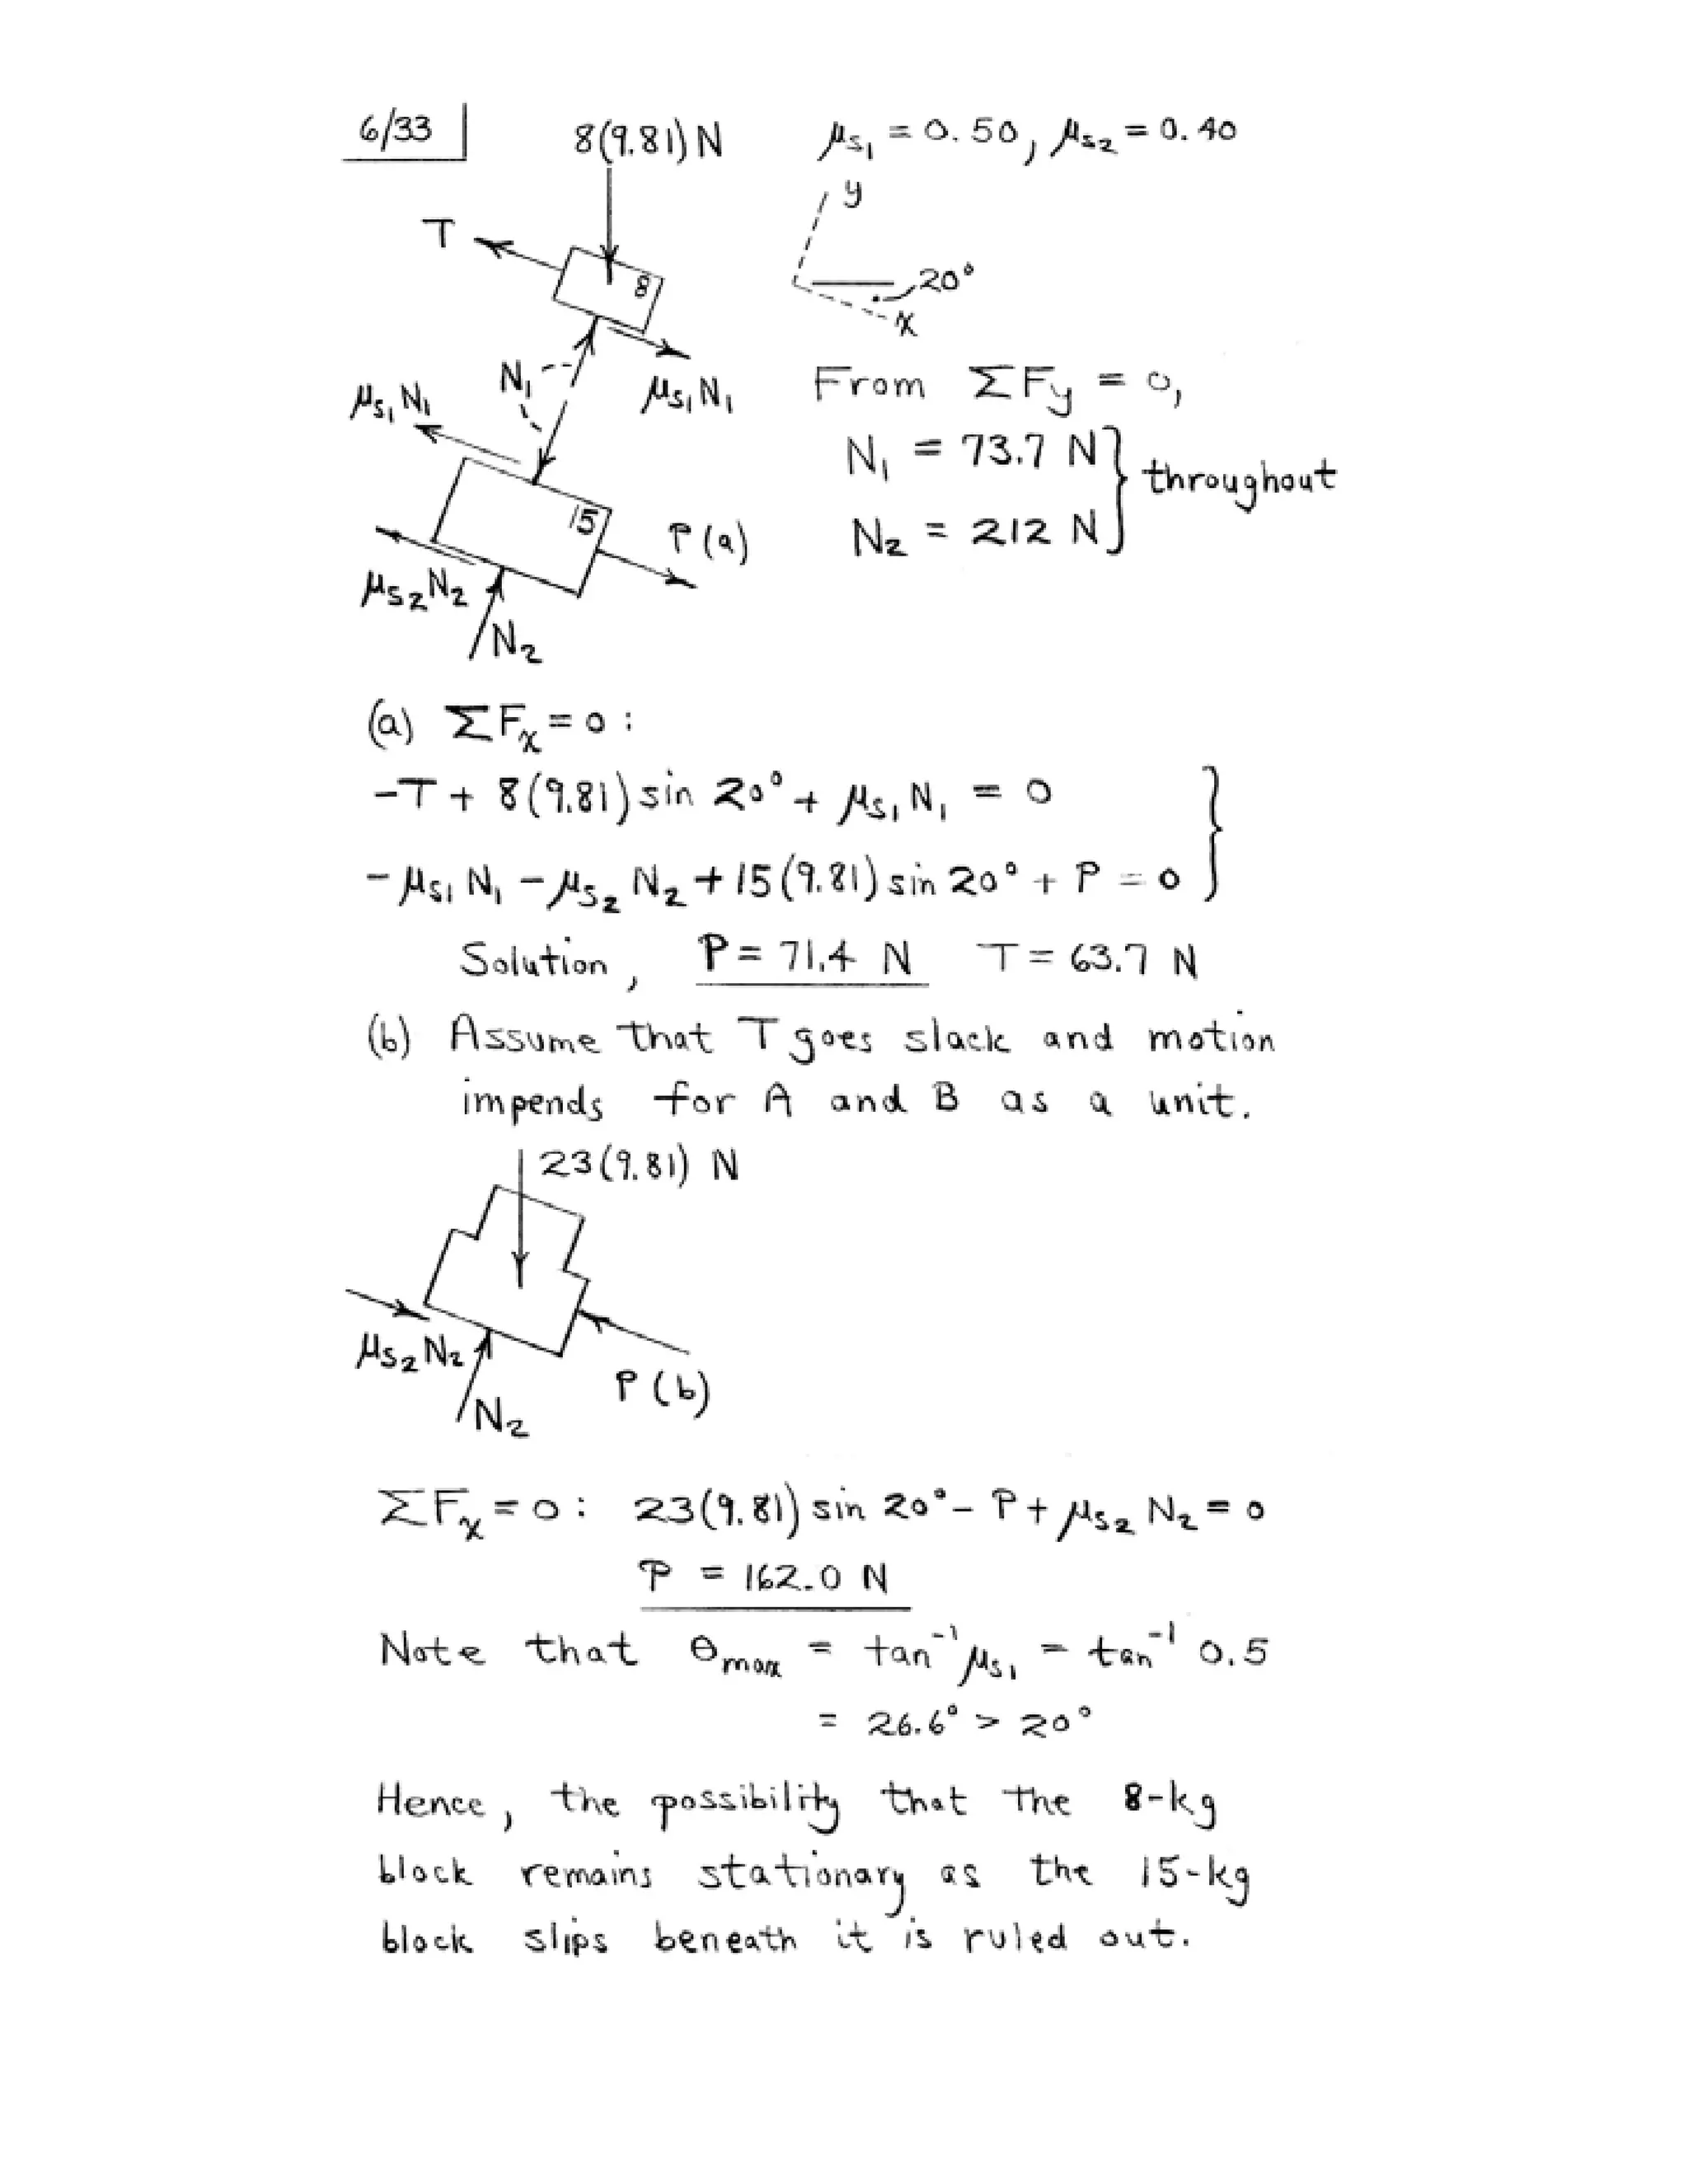 6/33
8(9.81) N
μs₁ = 0.50, μs₂ = 0.40
y
T
20°
8
x
N₁
μs₁ N₁
μs₁ N₁
From ΣFy = 0,
N₁ = 73.7 N } throughout
N₂ = 212 N
15
P (a)
μs₂ N₂
N₂
(a) ΣFx = 0 :
-T + 8(9.81) sin 20° + μs₁ N₁ = 0
- μs₁ N₁ - μs₂ N₂ + 15(9.81) sin 20° + P = 0 }
Solution, P = 71.4 N T = 63.7 N
(b) Assume that T goes slack and motion
impends for A and B as a unit.
23(9.81) N
μs₂ N₂
P (b)
N₂
ΣFx = 0 : 23(9.81) sin 20° - P + μs₂ N₂ = 0
P = 162.0 N
Note that θmax = tan⁻¹ μs₁ = tan⁻¹ 0.5
= 26.6° > 20°
Hence, the possibility that the 8-kg
block remains stationary as the 15-kg
block slips beneath it is ruled out.